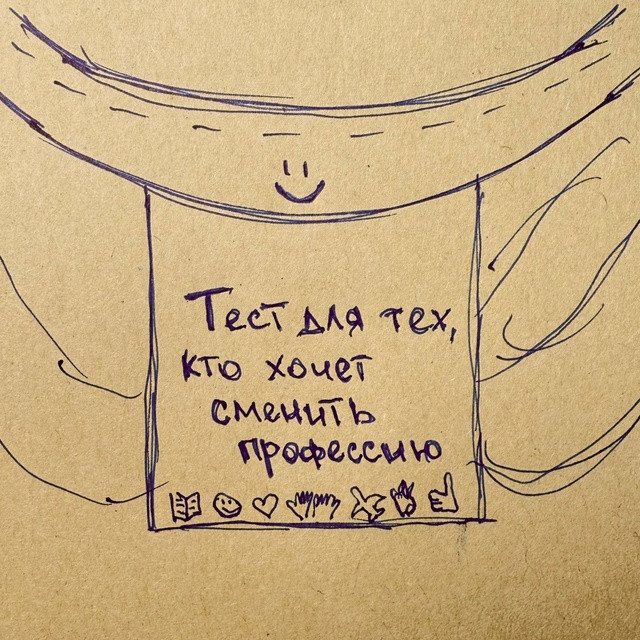 Тест для тех,
кто хочет
сменить
профессию